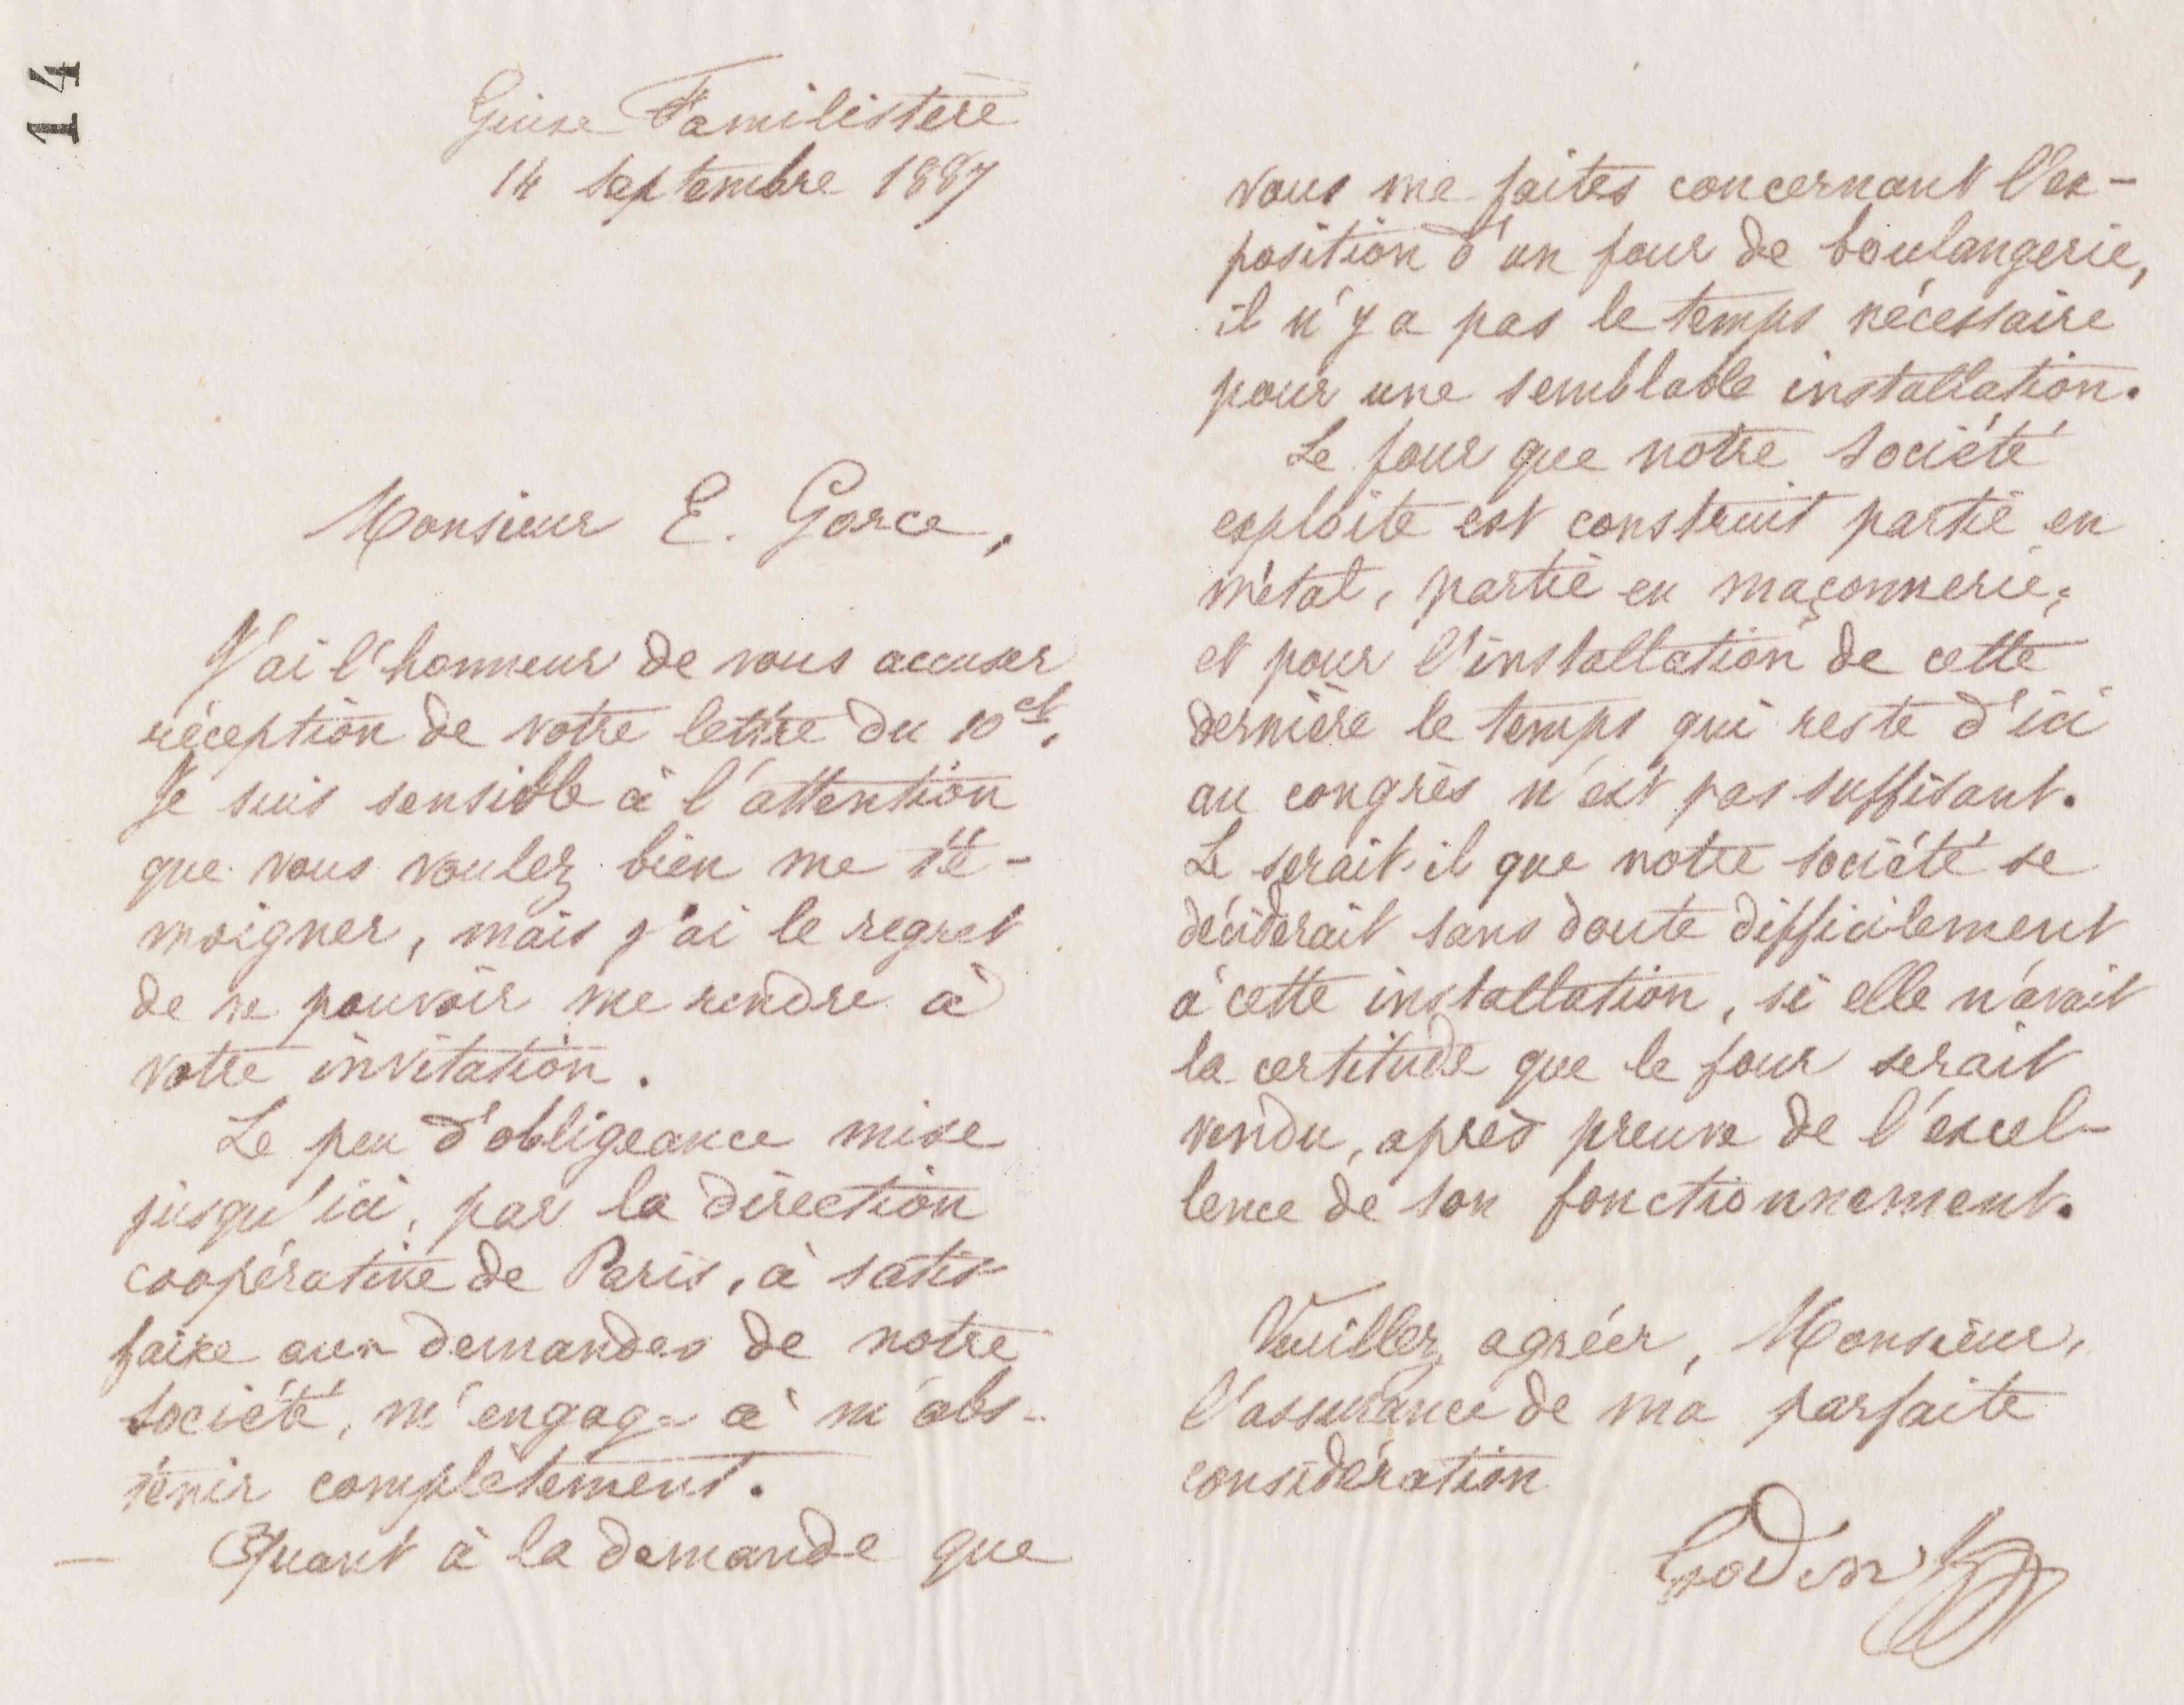 14
Guise Familistère
14 septembre 1887
Monsieur E. Gorce,
J'ai l'honneur de vous accuser
réception de votre lettre du 10 ct.
Je suis sensible à l'attention
que vous voulez bien me té-
moigner, mais j'ai le regret
de ne pouvoir me rendre à
votre invitation.
Le peu d'obligeance mise
jusqu'ici, par la direction
coopérative de Paris, à satis-
faire aux demandes de notre
société, m'engage à m'abs-
tenir complètement.
Quant à la demande que
vous me faites concernant l'ex-
position d'un four de boulangerie,
il n'y a pas le temps nécessaire
pour une semblable installation.
Le four que notre société
exploite est construit partie en
métal, partie en maçonnerie,
et pour l'installation de cette
dernière le temps qui reste d'ici
au congrès n'est pas suffisant.
Le serait-il que notre société se
déciderait sans doute difficilement
à cette installation, si elle n'avait
la certitude que le four serait
vendu, après preuve de l'excel-
lence de son fonctionnement.
Veuillez agréer, Monsieur,
l'assurance de ma parfaite
considération
Godin